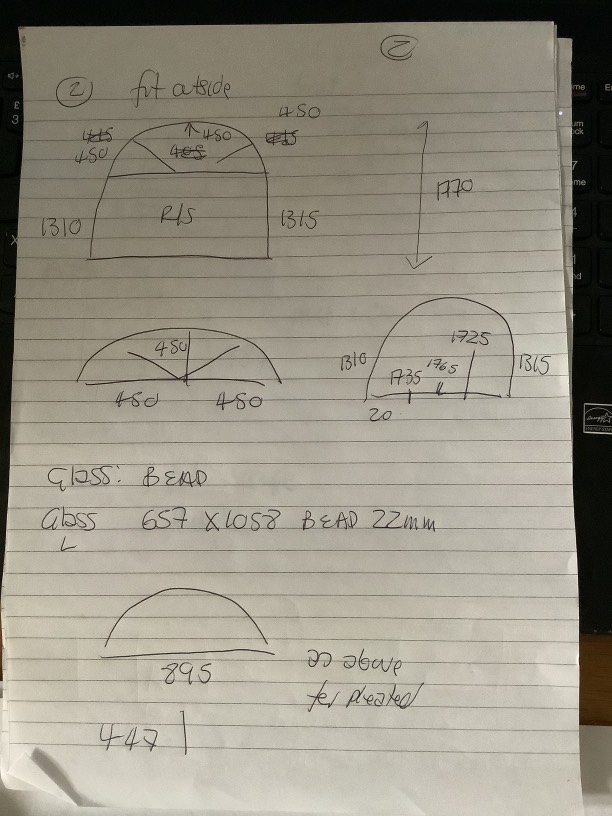 2
2 fit outside
450
445 450 415
450 405
1770
1310 R/S 1315
450 1725
1310 1735 1765 1315
450 450 20
Glass: BEAD
Glass 657 X1058 BEAD 22mm
L
895 as above
for pleated
447